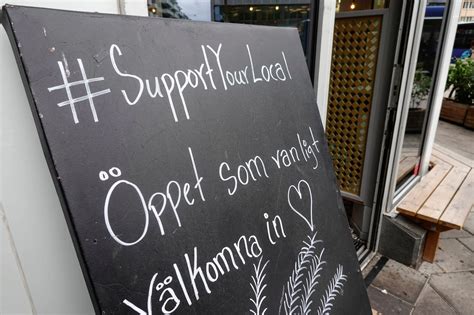 #SupportYourLocal
Öppet som vanligt
Välkomna in ♡